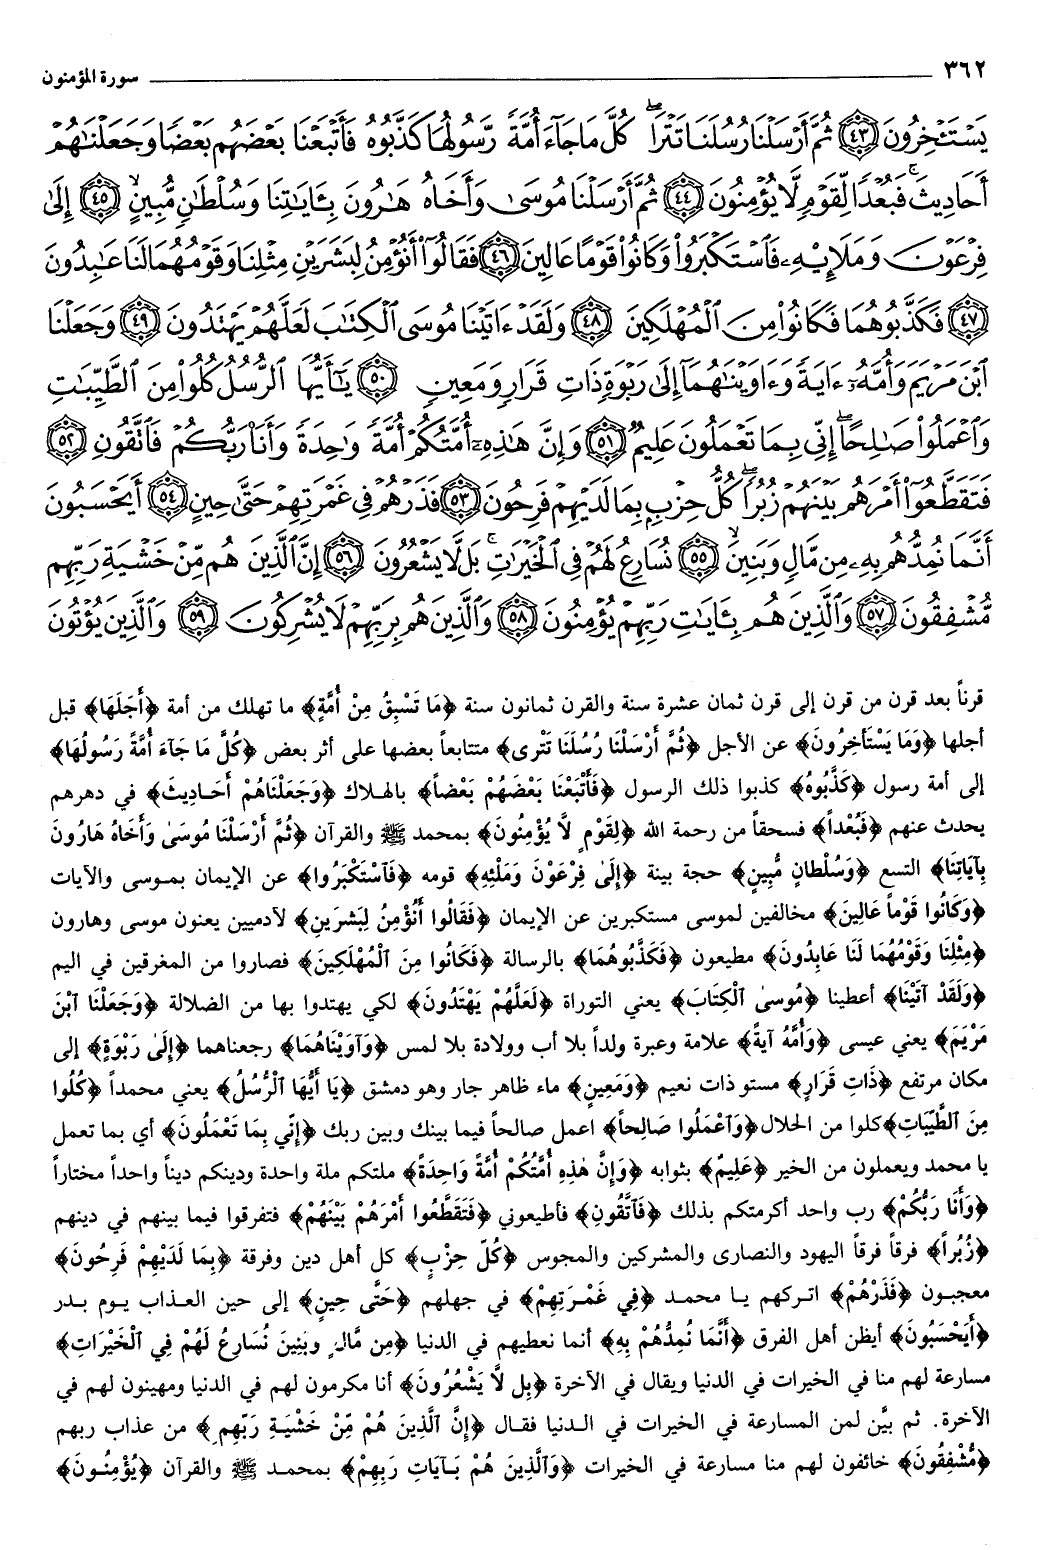 ٣٦٢ سورة المؤمنون
يَسْتَـْٔخِرُونَ ٤٣ ثُمَّ أَرْسَلْنَا رُسُلَنَا تَتْرَا ۖ كُلَّ مَا جَآءَ أُمَّةً رَّسُولُهَا كَذَّبُوهُ فَأَتْبَعْنَا بَعْضَهُم بَعْضًا وَجَعَلْنَٰهُمْ
أَحَادِيثَ ۚ فَبُعْدًا لِّقَوْمٍ لَّا يُؤْمِنُونَ ٤٤ ثُمَّ أَرْسَلْنَا مُوسَىٰ وَأَخَاهُ هَٰرُونَ بِـَٔايَٰتِنَا وَسُلْطَٰنٍ مُّبِينٍ ۙ ٤٥ إِلَىٰ
فِرْعَوْنَ وَمَلَإِي۟هِۦ فَٱسْتَكْبَرُوا۟ وَكَانُوا۟ قَوْمًا عَالِينَ ٤٦ فَقَالُوٓا۟ أَنُؤْمِنُ لِبَشَرَيْنِ مِثْلِنَا وَقَوْمُهُمَا لَنَا عَٰبِدُونَ
٤٧ فَكَذَّبُوهُمَا فَكَانُوا۟ مِنَ ٱلْمُهْلَكِينَ ٤٨ وَلَقَدْ ءَاتَيْنَا مُوسَى ٱلْكِتَٰبَ لَعَلَّهُمْ يَهْتَدُونَ ٤٩ وَجَعَلْنَا
ٱبْنَ مَرْيَمَ وَأُمَّهُۥٓ ءَايَةً وَءَاوَيْنَٰهُمَآ إِلَىٰ رَبْوَةٍ ذَاتِ قَرَارٍ وَمَعِينٍ ٥٠ يَٰٓأَيُّهَا ٱلرُّسُلُ كُلُوا۟ مِنَ ٱلطَّيِّبَٰتِ
وَٱعْمَلُوا۟ صَٰلِحًا ۖ إِنِّى بِمَا تَعْمَلُونَ عَلِيمٌ ٥١ وَإِنَّ هَٰذِهِۦٓ أُمَّتُكُمْ أُمَّةً وَٰحِدَةً وَأَنَا۠ رَبُّكُمْ فَٱتَّقُونِ ٥٢
فَتَقَطَّعُوٓا۟ أَمْرَهُم بَيْنَهُمْ زُبُرًا ۖ كُلُّ حِزْبٍۭ بِمَا لَدَيْهِمْ فَرِحُونَ ٥٣ فَذَرْهُمْ فِى غَمْرَتِهِمْ حَتَّىٰ حِينٍ ٥٤ أَيَحْسَبُونَ
أَنَّمَا نُمِدُّهُم بِهِۦ مِن مَّالٍ وَبَنِينَ ۙ ٥٥ نُسَارِعُ لَهُمْ فِى ٱلْخَيْرَٰتِ ۚ بَل لَّا يَشْعُرُونَ ٥٦ إِنَّ ٱلَّذِينَ هُم مِّنْ خَشْيَةِ رَبِّهِم
مُّشْفِقُونَ ٥٧ وَٱلَّذِينَ هُم بِـَٔايَٰتِ رَبِّهِمْ يُؤْمِنُونَ ٥٨ وَٱلَّذِينَ هُم بِرَبِّهِمْ لَا يُشْرِكُونَ ٥٩ وَٱلَّذِينَ يُؤْتُونَ
قرناً بعد قرن من قرن إلى قرن ثمان عشرة سنة والقرن ثمانون سنة ﴿مَا تَسْبِقُ مِنْ أُمَّةٍ﴾ ما تهلك من أمة ﴿أَجَلَهَا﴾ قبل
أجلها ﴿وَمَا يَسْتَأخِرُونَ﴾ عن الأجل ﴿ثُمَّ أَرْسَلْنَا رُسُلَنَا تَتْرى﴾ متتابعاً بعضها على أثر بعض ﴿كُلَّ مَا جَآءَ أُمَّةً رَسُولُهَا﴾
إلى أمة رسول ﴿كَذَّبُوهُ﴾ كذبوا ذلك الرسول ﴿فَأَتْبَعْنَا بَعْضَهُمْ بَعْضاً﴾ بالهلاك ﴿وَجَعَلْنَاهُمْ أَحَادِيثَ﴾ في دهرهم
يحدث عنهم ﴿فَبُعْداً﴾ فسحقاً من رحمة الله ﴿لِقَوْمٍ لَّا يُؤْمِنُونَ﴾ بمحمد ﷺ والقرآن ﴿ثُمَّ أَرْسَلْنَا مُوسَىٰ وَأَخَاهُ هَارُونَ
بِآيَاتِنَا﴾ التسع ﴿وَسُلْطانٍ مُّبِينٍ﴾ حجة بينة ﴿إِلَىٰ فِرْعَوْنَ وَمَلْئِهِ﴾ قومه ﴿فَٱسْتَكْبَرُوا﴾ عن الإيمان بموسى والآيات
﴿وَكَانُوا قَوْماً عَالِينَ﴾ مخالفين لموسى مستكبرين عن الإيمان ﴿فَقَالُوا أَنُؤْمِنُ لِبَشَرَيْنِ﴾ لآدميين يعنون موسى وهارون
﴿مِثْلِنَا وَقَوْمُهُمَا لَنَا عَابِدُونَ﴾ مطيعون ﴿فَكَذَّبُوهُمَا﴾ بالرسالة ﴿فَكَانُوا مِنَ ٱلْمُهْلَكِينَ﴾ فصاروا من المغرقين في اليم
﴿وَلَقَدْ آتَيْنَا﴾ أعطينا ﴿مُوسىٰ ٱلْكِتَابَ﴾ يعني التوراة ﴿لَعَلَّهُمْ يَهْتَدُونَ﴾ لكي يهتدوا بها من الضلالة ﴿وَجَعَلْنَا ٱبْنَ
مَرْيَمَ﴾ يعني عيسى ﴿وَأُمَّهُ آيَةً﴾ علامة وعبرة ولداً بلا أب وولادة بلا لمس ﴿وَآوَيْنَاهُمَا﴾ رجعناهما ﴿إِلَىٰ رَبْوَةٍ﴾ إلى
مكان مرتفع ﴿ذَاتِ قَرَارٍ﴾ مستو ذات نعيم ﴿وَمَعِينٍ﴾ ماء ظاهر جار وهو دمشق ﴿يَا أَيُّهَا ٱلْرُّسُلُ﴾ يعني محمداً ﴿كُلُوا
مِنَ ٱلطَّيِّبَاتِ﴾ كلوا من الحلال ﴿وَٱعْمَلُوا صَالِحاً﴾ اعمل صالحاً فيما بينك وبين ربك ﴿إِنِّي بِمَا تَعْمَلُونَ﴾ أي بما تعمل
يا محمد ويعملون من الخير ﴿عَلِيمٌ﴾ بثوابه ﴿وَإِنَّ هٰذِهِ أُمَّتُكُمْ أُمَّةً وَاحِدَةً﴾ ملتكم ملة واحدة ودينكم ديناً واحداً مختاراً
﴿وَأَنَا رَبُّكُمْ﴾ رب واحد أكرمتكم بذلك ﴿فَٱتَّقُونِ﴾ فأطيعوني ﴿فَتَقَطَّعُوا أَمْرَهُمْ بَيْنَهُمْ﴾ فتفرقوا فيما بينهم في دينهم
﴿زُبُراً﴾ فرقاً فرقاً اليهود والنصارى والمشركين والمجوس ﴿كُلّ حِزْبٍ﴾ كل أهل دين وفرقة ﴿بِمَا لَدَيْهِمْ فَرِحُونَ﴾
معجبون ﴿فَذَرْهُمْ﴾ اتركهم يا محمد ﴿فِي غَمْرَتِهِمْ﴾ في جهلهم ﴿حَتَّى حِينٍ﴾ إلى حين العذاب يوم بدر
﴿أَيَحْسَبُونَ﴾ أيظن أهل الفرق ﴿أَنَّمَا نُمِدُّهُمْ بِهِ﴾ أنما نعطيهم في الدنيا ﴿مِن مَّالٍ وبَنِينَ نُسَارِعُ لَهُمْ فِي ٱلْخَيْرَاتِ﴾
مسارعة لهم منا في الخيرات في الدنيا ويقال في الآخرة ﴿بل لَّا يَشْعُرُونَ﴾ أنا مكرمون لهم في الدنيا ومهينون لهم في
الآخرة. ثم بيَّن لمن المسارعة في الخيرات في الدنيا فقال ﴿إِنَّ ٱلَّذِينَ هُمْ مِّنْ خَشْيَةِ رَبِّهِم﴾ من عذاب ربهم
﴿مُّشْفِقُونَ﴾ خائفون لهم منا مسارعة في الخيرات ﴿وَٱلَّذِينَ هُمْ بَآيَاتِ رَبِهِمْ﴾ بمحمد ﷺ والقرآن ﴿يُؤْمِنُونَ﴾